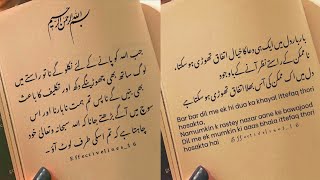 بسم اللہ الرحمن الرحیم
جب اللہ کو پانے کے لئے نکلو گے نا تو راستے میں
لوگ ساتھ بھی چھوڑینگے دکھ اور تکلیف کا باعث
بھی بنیں گے بس تم ہمت نا ہارنا اور اس
سوچ میں آگے بڑھتے جانا کہ اللہ سبحانہ وتعالیٰ خود
چاہتا ہے کہ تم اسکی طرف لوٹ آؤ۔
Effectivelines_16
بار بار دل میں ایک ہی دعا کا خیال اتفاق تھوڑی ہو سکتا،
نا ممکن کے راستے نظر آنے کے باوجود
دل میں اک ممکن کی آس بھلا اتفاق تھوڑی ہو سکتا ہے
Bar bar dil me ek hi dua ka khayal ittefaq thori
hosakta,
Namumkin k rastey nazar aane ke bawajood
Dil me ek mumkin ki aaas bhala ittefaq thori
hosakta hai
Effectivelines_16